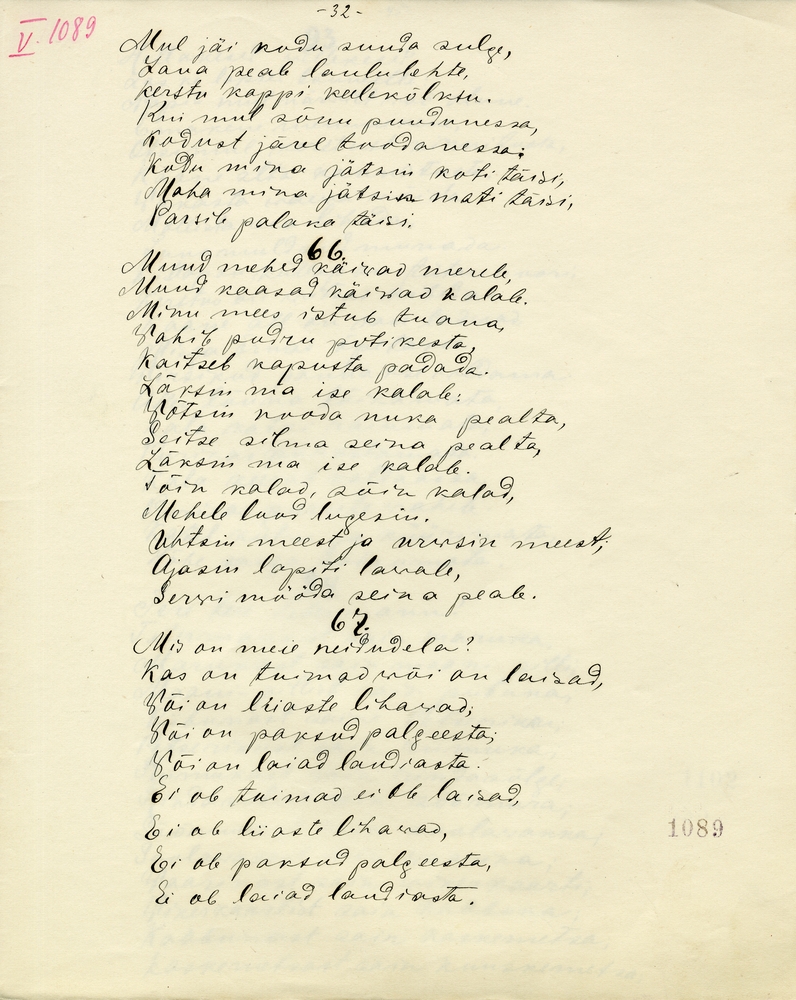 -32-
V. 1089
Mul jäi kodu suuda sulge,
Laua peale laululehte,
kerstu kappi keelekõlksu.
Kui mul sõnu puudunessa,
Kodust järel toodanessa:
Kodu mina jätsin koti täisi,
Maha mina jätsin mati täisi,
Parsile palaka täisi.
66.
Muud mehed käiwad merele,
Muud kaasad käiwad kalale.
Minu mees istub tuana,
Wahib pudru potikesta,
Kaitseb kapusta padada.
Läksin ma ise kalale:
Wõtsin nooda nuka pealta,
Seitse silma seina pealta,
Läksin ma ise kalale.
Tõin kalad, sõin kalad,
Mehele luud lugesin.
Uhtsin meest ja uwwsin meest,
Ajasin lapiti lawale,
Serwi mööda seina peale.
67.
Mis on meie neidudela?
Kas on tuimad wõi on laisad,
Wõi on liiaste lihawad;
Wõi on paksud palgeesta;
Wõi on laiad laudiasta.
Ei ole tuimad ei ole laisad,
Ei ole liiaste lihawad,
Ei ole paksud palgeesta,
Ei ole laiad laudiasta.
1089